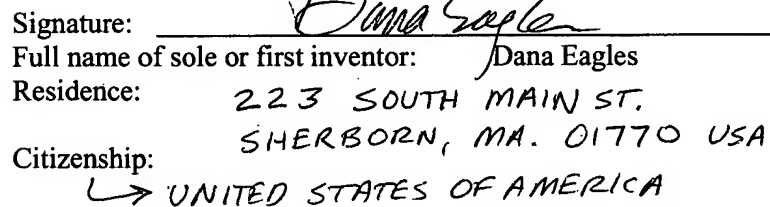 Signature: Dana Eagles
Full name of sole or first inventor: Dana Eagles
Residence: 223 SOUTH MAIN ST.
SHERBORN, MA. 01770 USA
Citizenship:
UNITED STATES OF AMERICA